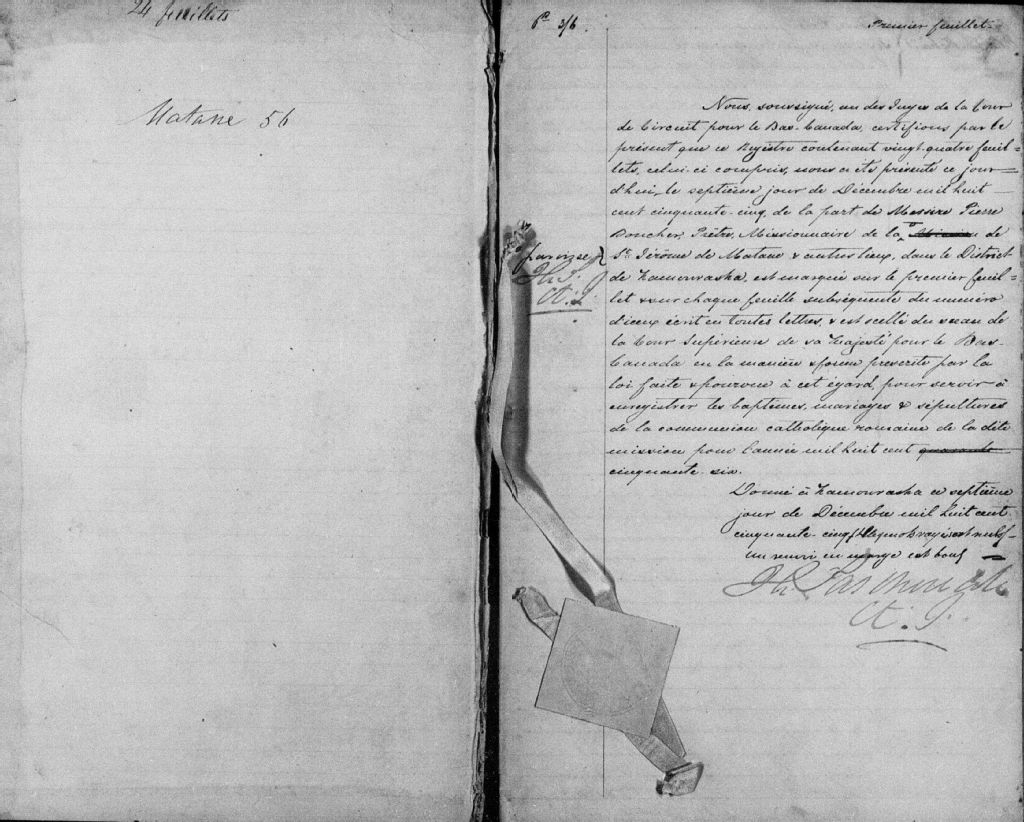 24 feuillets
Matane 56
Premier feuillet.
Nous, soussigné, un des Juges de la Cour
de Circuit pour le Bas-Canada, certifions par le
présent que ce Régistre contenant vingt-quatre feuil-
lets, celui-ci compris, nous a été présenté ce jour-
d'hui, le septième jour de Décembre mil huit
cent cinquante-cinq, de la part de Messire Pierre
Boucher, Prêtre, Missionnaire de la de
St Jérôme de Matane & autres lieux, dans le District
de Kamouraska, est marqué sur le premier feuil-
let & sur chaque feuille subséquente du numéro
d'iceux écrit en toutes lettres, & est scellé du sceau de
la Cour Supérieure de sa Majesté pour le Bas-
Canada en la manière & forme prescrite par la
loi faite & pourvue à cet égard, pour servir à
enregistrer les baptêmes, mariages & sépultures
de la communion catholique romaine de la dite
mission pour l'année mil huit cent quarante
cinquante-six.
Donné à Kamouraska ce septième
jour de Décembre mil huit cent
cinquante-cinq,
un renvoi en marge est bon
paroisse